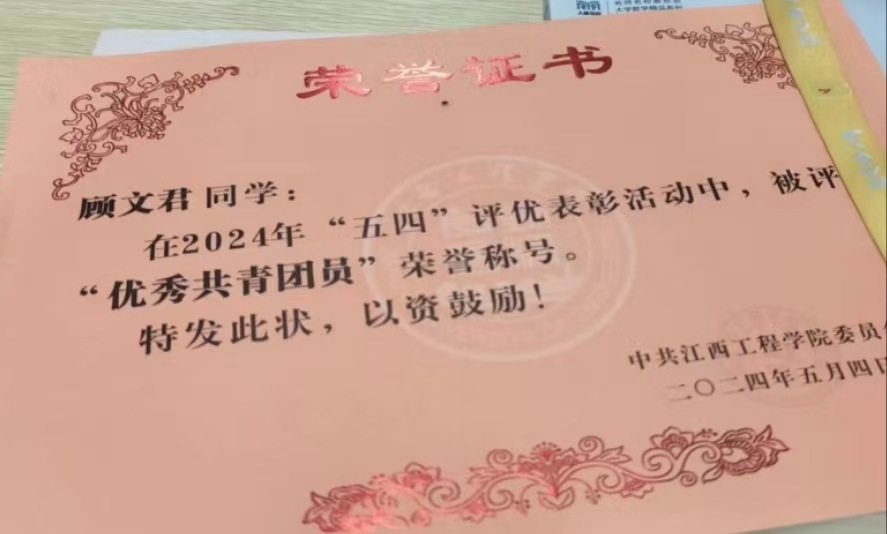 荣誉证书
顾文君 同学：
在2024年“五四”评优表彰活动中，被评
“优秀共青团员”荣誉称号。
特发此状，以资鼓励！
中共江西工程学院委员
二〇二四年五月四日